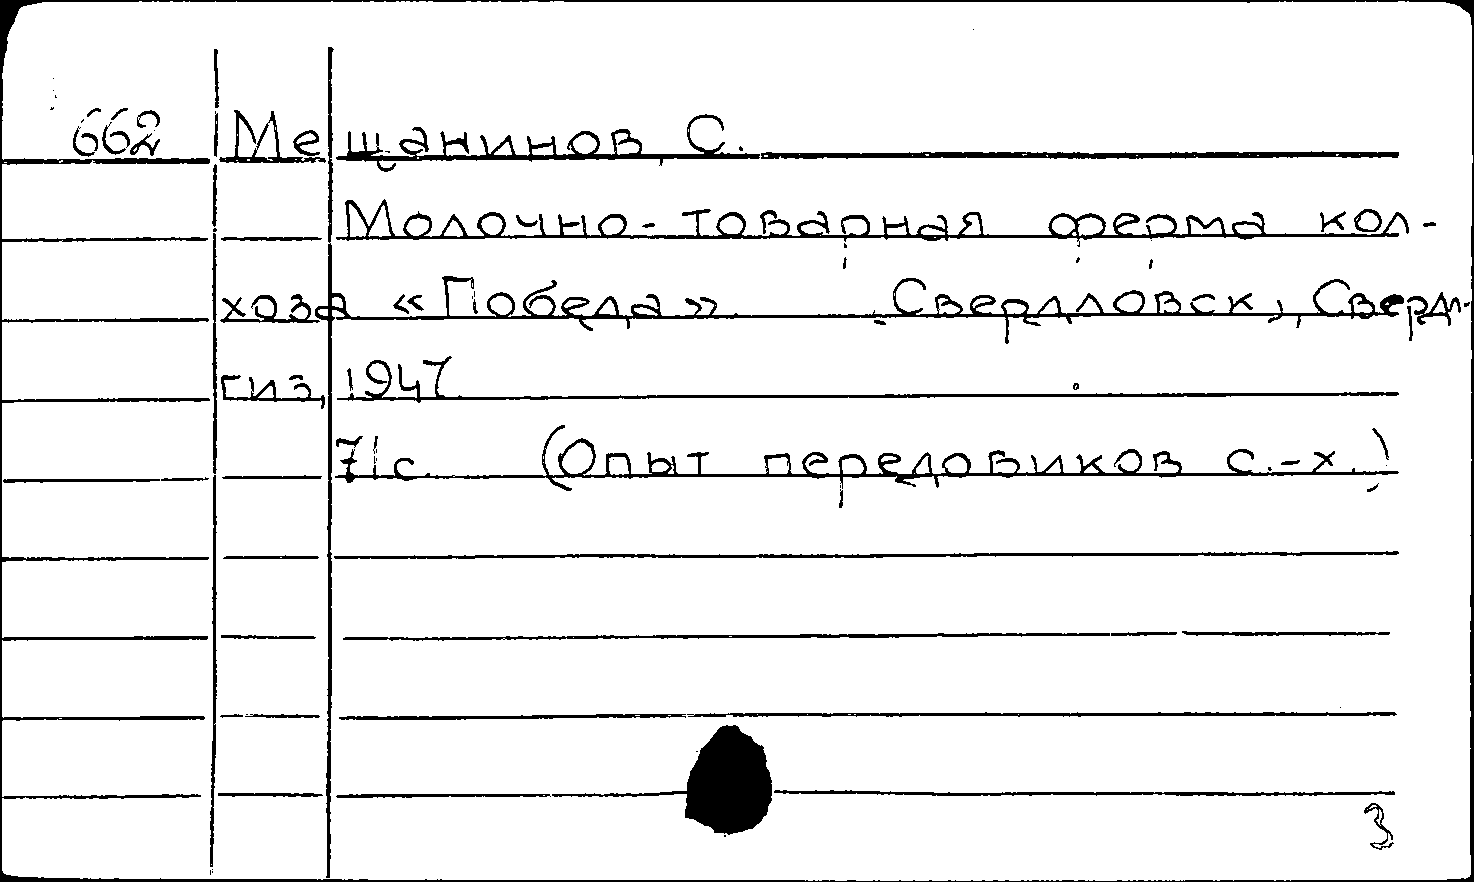 662 Мещанинов С.
Молочно-товарная ферма кол-
хоза «Победа» Свердловск, Свердл-
гиз, 1947
71 с. (Опыт передовиков с.-х.)
3